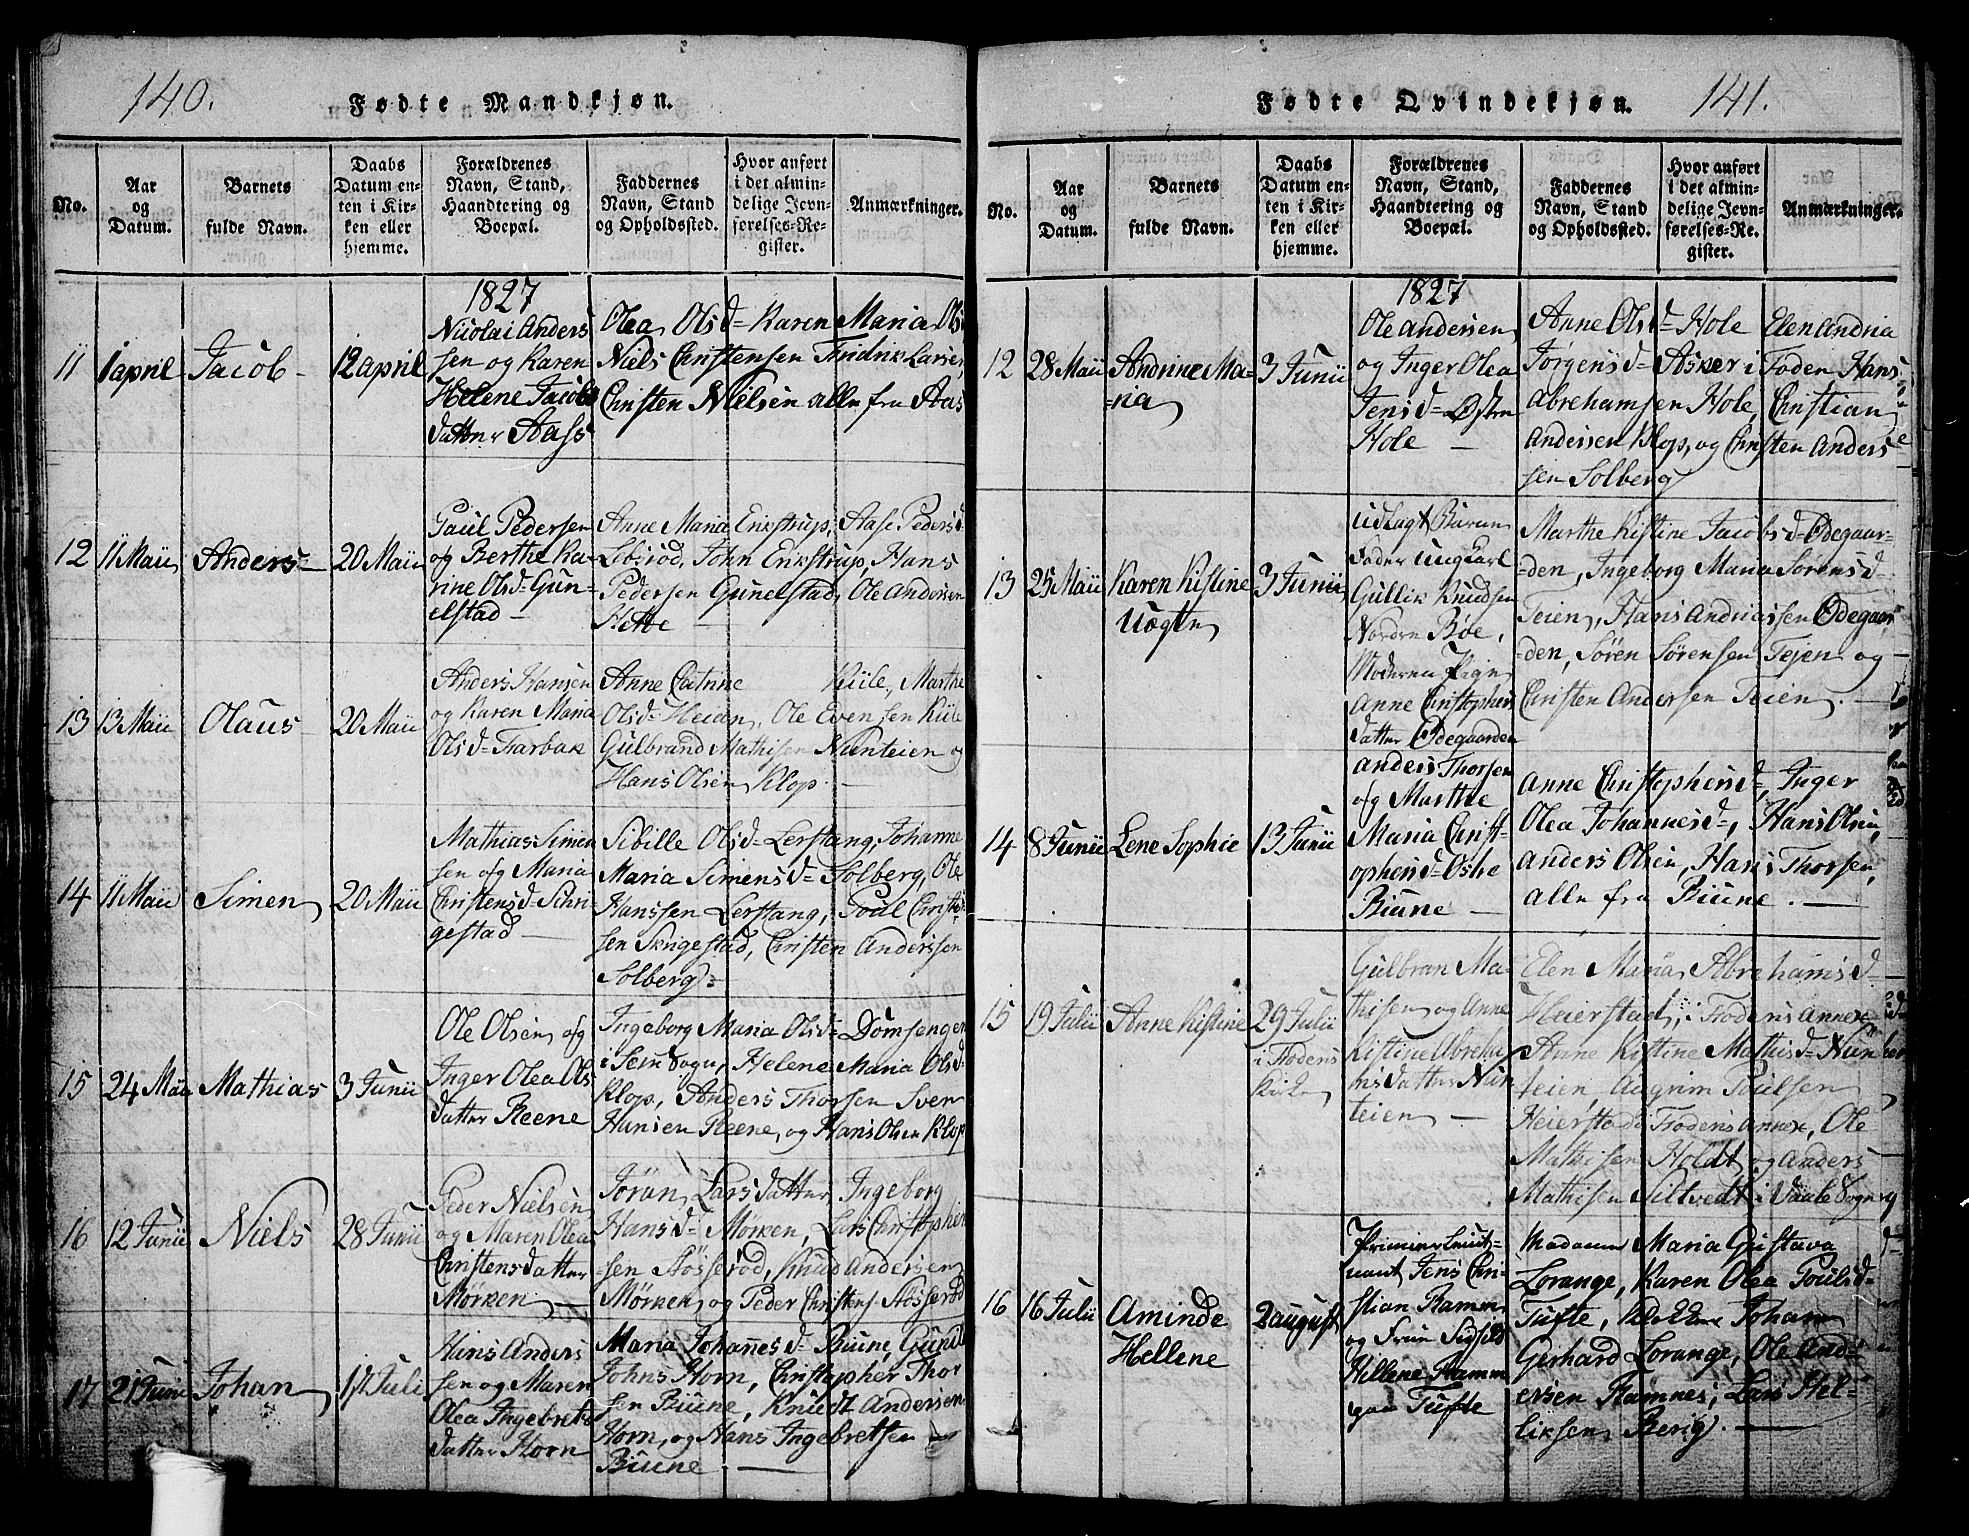 140.
Fødte Mandkjøn.
No.
Aar og Datum.
Barnets fulde Navn.
Daabs Datum enten i Kirken eller hjemme.
Forældrenes Navn, Stand, Haandtering og Boepæl.
Faddernes Navn, Stand og Opholdssted.
Hvor anført i det almindelige Jevnførelses-Register.
Anmærkninger.
1827
11 1 april Jacob 12 april
Nicolai Anders
sen og Karen
Helene Jacobs
datter Aass
Olea Olsd= Karen Maria Ols
Niels Christensen Fredrik Larsen
Christen Nielsen alle fra Aas
12 11 Maii Anders 20 Maii
Paul Pedersen
og Berthe Ka-
rine Olsd= Gun-
elstad
Anne Maria Erikstrup, Aase Pedersd
John Erikstrup, Hans
Pedersen Gunelstad, Ole Andersen
Hette
13 13 Maii Olaus 20 Maii
Anders Hansen
og Karen Maria
Olsd= Tarbak
Anne Catrine Kiile, Marthe
Olsd= Heian, Ole Evensen Kiile
Gulbrand Mathisen Nunteien og
Hans Olsen Klop.
14 11 Maii Simen 20 Maii
Mathias Simen
sen og Maria
Christensd= Schri
gestad
Sibille Olsd= Lerstang, Johanne
Maria Simensd= Solberg, Ole
Hanssen Lerstang, Poul Christ
sen Skrigestad, Christen Anderssen
Solberg
15 24 Maii Mathias 3 Junii
Ole Olsen og
Inger Olea Ols
datter Reene
Ingeborg Maria Olsd= Domsengen
i Sem Sogn, Helene Maria Olsd=
Klop, Anders Thorsen Sven
Hansen Reene, og Hans Olsen Klop
16 12 Junii Niels 28 Junii
Peder Nielsen
og Maren Olea
Christensdatter
Mørken
Jøran Larsdatter, Ingeborg
Hansd= Mørken, Lars Christophen
sen Støsserød, Knud Andersen
Mørken og Peder Christens. Støsserød
17 21 Juni Johan 17 Juli
Hans Anders
sen og Maren
Olea Ingebrets
datter Horn
Maria Johannesd= Biune, Gunil
Johns Horn, Christopher Thor
sen Biune, Knudt Andersen
Horn, og Hans Ingebretsen
Biune
141.
Fødte Qvindekjøn.
No.
Aar og Datum.
Barnets fulde Navn.
Daabs Datum enten i Kirken eller hjemme.
Forældrenes Navn, Stand, Haandtering og Boepæl.
Faddernes Navn, Stand og Opholdssted.
Hvor anført i det almindelige Jevnførelses-Register.
Anmærkninger.
1827
12 28 Maii Andrine Ma-
=ria 3 Junii
Ole Andersen
og Inger Olea
Jensd= Østre
Hole
Anne Olsd= Hole Elen Andria
Jørgensd= Asker i Foden Hans
Abrehamsen Hole, Christian
Andersen Klop, og Christen Anders
sen Solberg
13 25 Maii Karen Kistine
Uægte 3 Junii
Udlagt Barne
fader Ungkarl
Gullik Knudsen
Nordre Bøe,
Moderen Pigen
Anne Christophers
datter Ødegaarden
Marthe Kistine Jacobsd= Ødegaar-
=den, Ingeborg Maria Sørensd=
Teien, Hans Andriassen Ødegaar
=den, Søren Sørensen Tejen og
Christen Andersen Teien.
14 8 Junii Lene Sophie 13 Junii
Anders Thorsen
og Marthe
Maria Christ-
ophersd= Østre
Biune
Anne Christophersd=, Inger
Olea Johannesd=, Hans Olsen,
Anders Olsen, Hans Thorsen,
alle fra Biune.
15 19 Julii Anne Kistine 29 Julii
i Frodens
Kirke
Gulbran Ma-
thisen og Anne
Kistine Abreha
msdatter Nun
teien
Elen Maria Abrehamsd=
Heierstad, i Frodens Annex
Anne Kistine Mathisd= Nun
teien, Augrim Poulsen
Heierstad i Frodens Annex, Ole
Mathisen Holdt og Anders
Mathisen Siltvedt i Vaale Sogn
16 16 Julii Aminde
Hellene 2 august
Primier Leut=
nant Jens Chri-
stian Ramm
og Frue Sidsild
Hellene Ramm
paa Tufte
Madame Maria Gustava
Lorange, Karen Olea Poulsd=
Tufte, Johan
Gerhard Lorange, Ole And=
ersen Ramnes, Lars Hel=
liksen Berig.